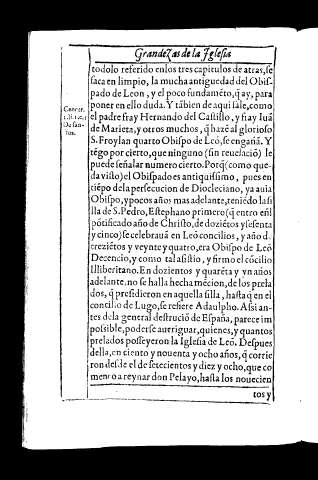 Grandezas de la Iglesia
todolo referido enlos tres capitulos de atras, se
saca en limpio, la mucha antiguedad del Obis-
pado de Leon, y el poco fundamẽto, q̃ ay, para
poner en ello duda. Y tãbien de aqui sale, como
el padre fray Hernando del Castillo, y fray Iuã
de Marieta, y otros muchos, q̃ hazẽ al glorioso
S. Froylan quarto Obispo de Leõ, se engañã. Y
tẽgo por cierto, que ninguno (sin reuelaciõ) le
puede señalar numero cierto. Porq̃ (como que-
da visto) el Obispado es antiquissimo, pues en
tiẽpo dela persecucion de Diocleciano, ya auia
Obispo, y pocos años mas adelante, teniẽdo la si
lla de S. Pedro, Estephano primero (q̃ entro enl
põtificado año de Christo, de doziẽtos y sesenta
y cinco) se celebraua en Leõ concilios, y año d̃
treziẽtos y veynte y quatro, era Obispo de Leõ
Decencio, y como tal asistio, y firmo el cõcilio
Illiberitano. En dozientos y quarẽta y vn años
adelante, no se halla hecha mẽcion, de los prela
dos, q̃ presidieron en aquella silla, hasta q̃ en el
concilio de Lugo, se refiere Adaulpho. Assi an-
tes dela general destruciõ de España, parece im
possible, poderse auerriguar, quienes, y quantos
prelados posseyeron la Iglesia de Leõ. Despues
della, en ciento y nouenta y ocho años, q̃ corrie
ron desde el de setecientos y diez y ocho, que co
menço a reynar don Pelayo, hasta los nouecien
tos y